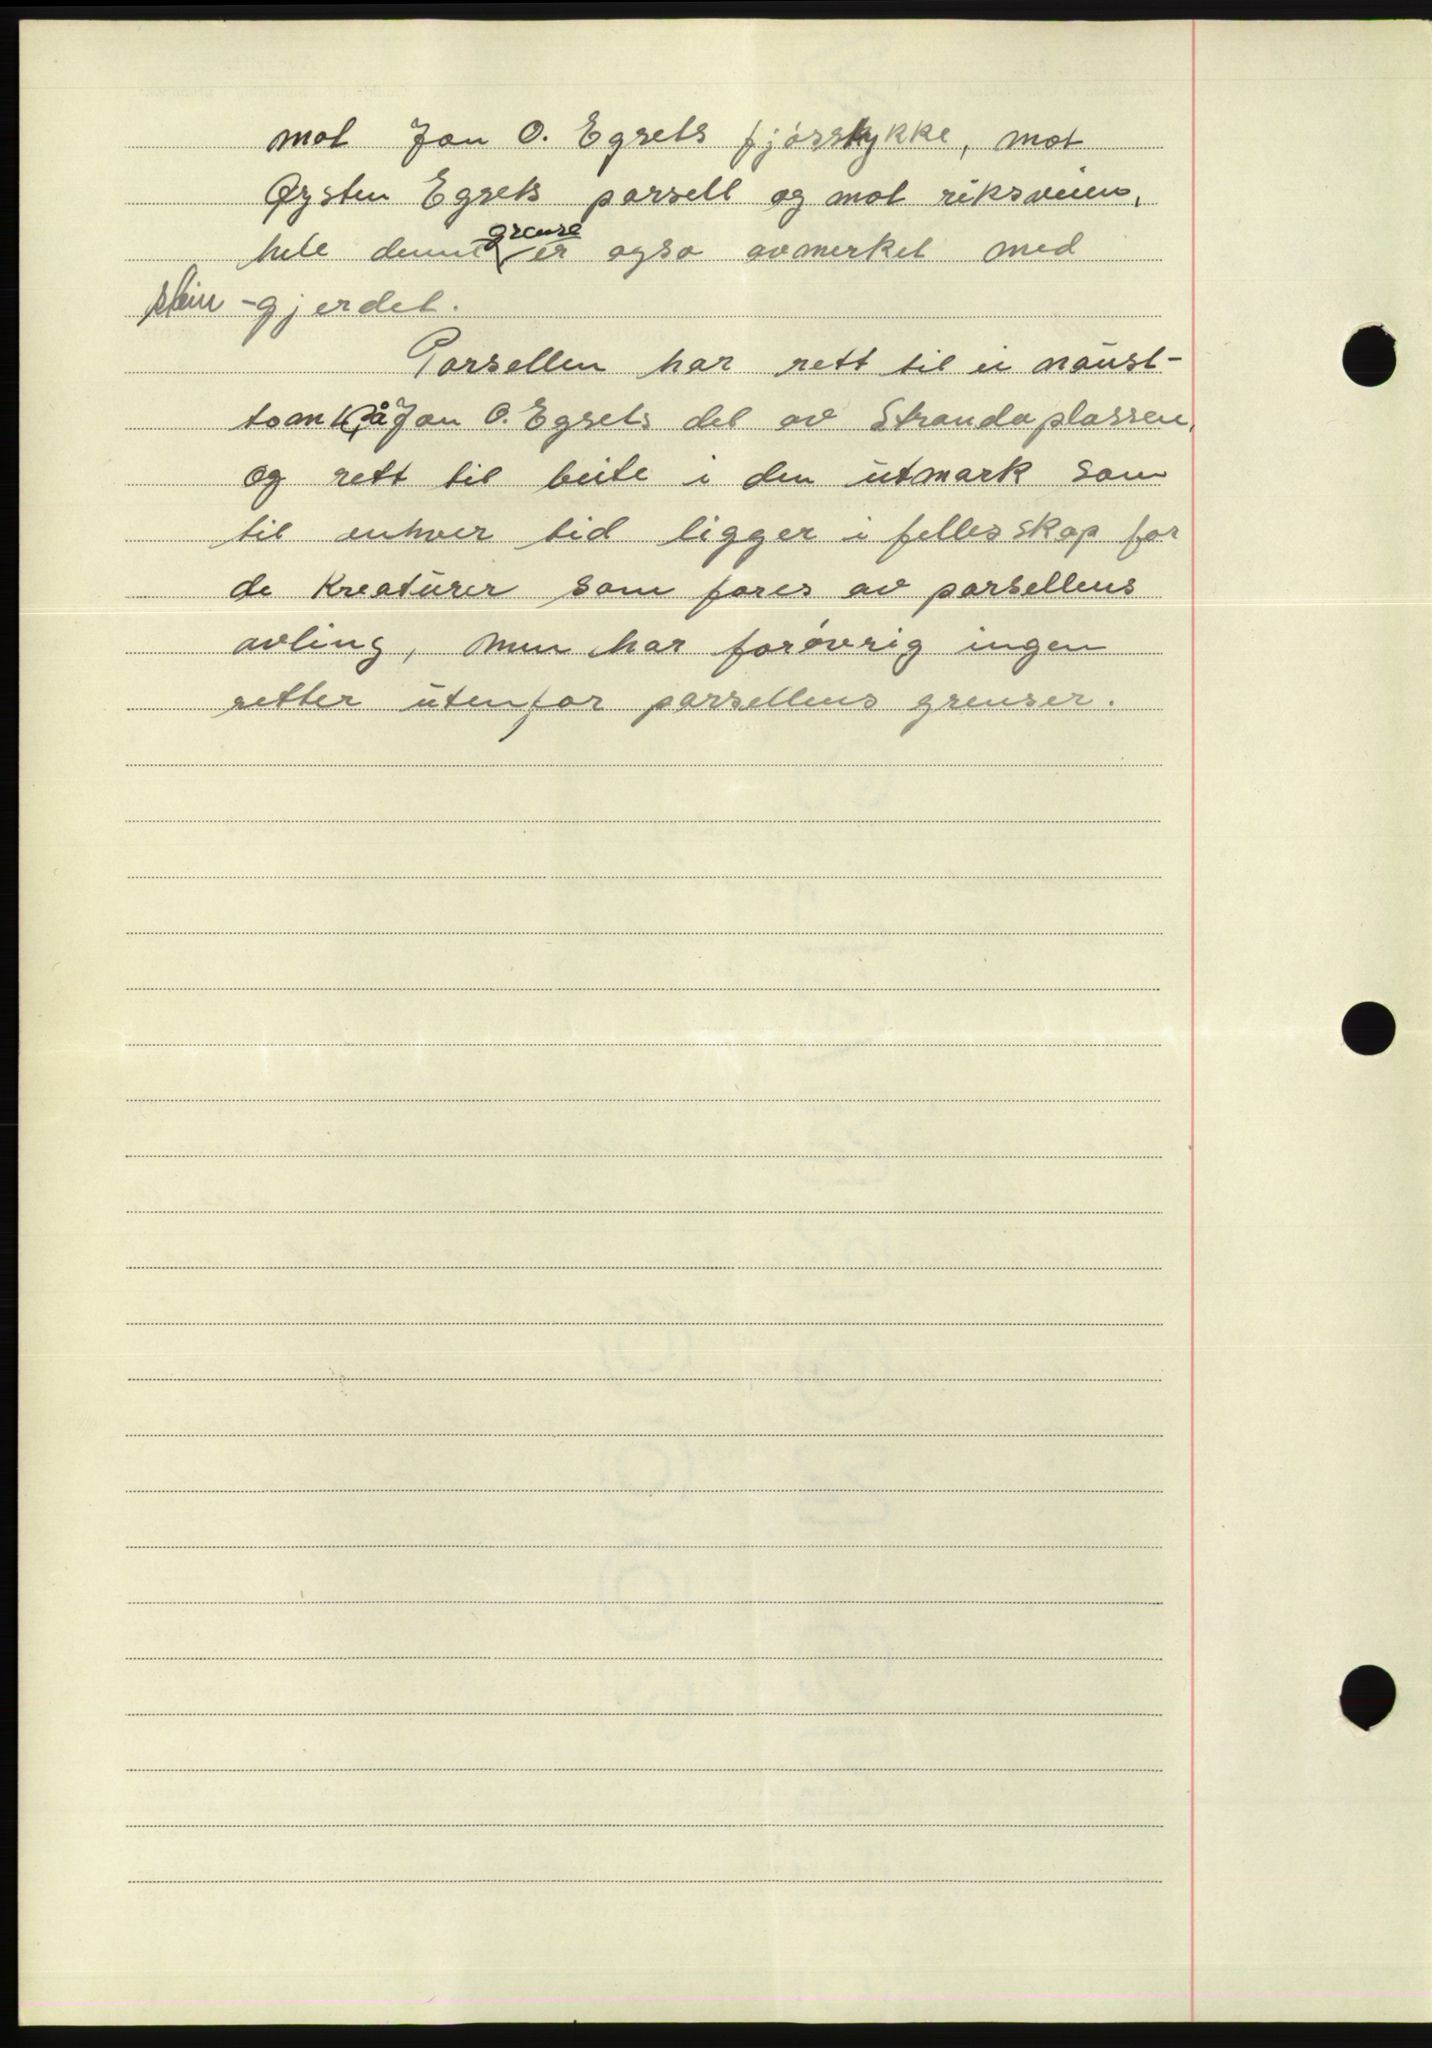 mot Jon O. Egsets fjøsstykke, mot
Øysten Egsets parsell og mot riksveien,
hele denne grense er også avmerket med
stein-gjerdet.
Parsellen har rett til ei naust-
tomt på Jon O. Egsets del av Strandaplassen,
og rett til beite i den utmark som
til enhver tid ligger i fellesskap for
de kreaturer som fores av parsellens
avling, men har forøvrig ingen
retter utenfor parsellens grenser.